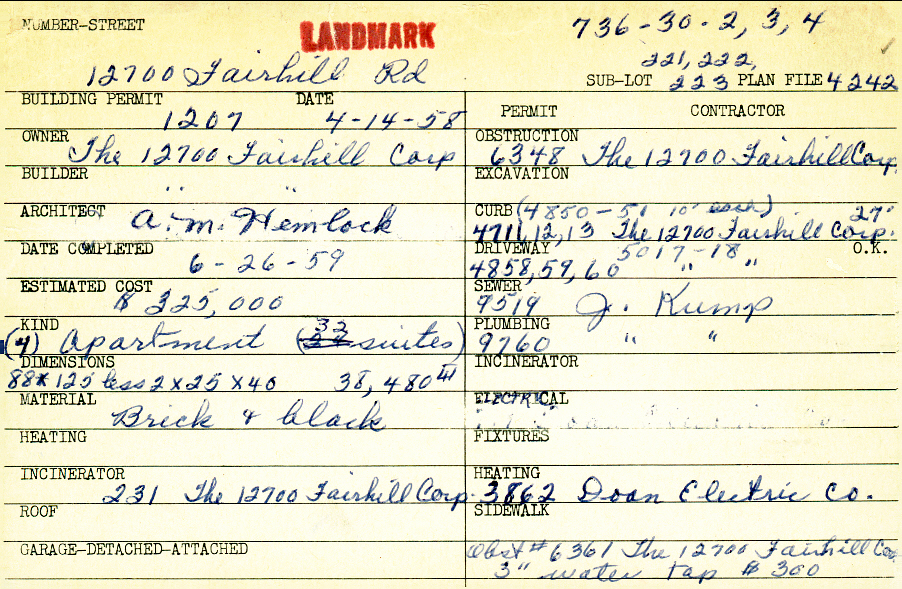 NUMBER-STREET
LANDMARK
736-30-2, 3, 4
12700 Fairhill Rd
221, 222,
SUB-LOT 223 PLAN FILE 4242
BUILDING PERMIT DATE
1207 4-14-58
PERMIT CONTRACTOR
OWNER
The 12700 Fairhill Corp
OBSTRUCTION
6348 The 12700 Fairhill Corp.
BUILDER
" "
EXCAVATION
ARCHITECT
A. M. Hemlock
CURB (4850-51 10' each) 27'
4711, 12, 13 The 12700 Fairhill Corp.
DATE COMPLETED
6-26-59
DRIVEWAY 5017-18 O.K.
4858, 59, 60 " "
ESTIMATED COST
$ 325,000
SEWER
9519 J. Kump
KIND
(4) Apartment (32 suites)
PLUMBING
9760 " "
DIMENSIONS
88 x 125 less 2 x 25 x 40 38,480
INCINERATOR
MATERIAL
Brick & black
ELECTRICAL
HEATING
FIXTURES
INCINERATOR
231 The 12700 Fairhill Corp.
HEATING
3862 Doan Electric Co.
ROOF
SIDEWALK
GARAGE-DETACHED-ATTACHED
Obst # 6361 The 12700 Fairhill Co
3" water tap $ 300